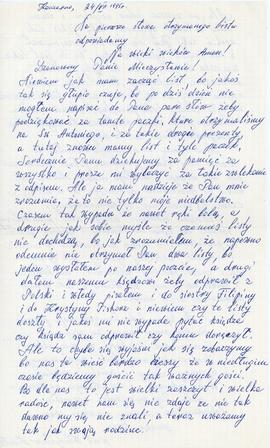 Na pierwsze słowa otrzymanego listu
odpowiadamy
Na wieki wieków Amen!
Szanowny Panie Mieczysławie!
Niewiem jak mam zacząć list, bo jakoś
tak się głupio czuję, bo po dziś dzień nie
mogłem napisać do Pana parę słów żeby
podziękować za tamte paczki, które otrzymaliśmy
na Św Antoniego, i za takie drogie prezenty
a tutaj znowu mamy list i tyle paczek,
Serdecznie Panu dziękujemy za pamięć za
wszystko i proszę mi wybaczyć za takie zwlekanie
z odpisem. Ale ja mam nadzieję że Pan mnie
zrozumie, że to nie tylko moje niedbalstwo.
Czasem tak wypada że nawet ręki bolą, a
drugie jak sobie myślę że czemuś listy
nie dochodzą, bo jak zrozumiałem, że napewno
odemnie nie otrzymał Pan dwa listy, bo
jeden wysłałem po naszej poczcie, a drugi
dałem naszemu księdzowi żeby odprawił z
Polski i wtedy pisałem i do siostry Filipiny
i do Krystyny i niewiem czy te listy
doszły i jakoś mi nie wypada pytać księdza
czy Ksiądz sam odprawił czy komu doruczył.
Ale to chyba się wyjaśni jak się zobaczymy
bo nas to cieszy że w niedługim
czasie będziemy gościć tak ważnych gości.
Bo dla nas to jest wielki zaszczyt i wielka
radość, nawet nam się nie zdaje że nie tak
dawno my się nie znali, a teraz uważamy
tak jak swoją rodzinę.